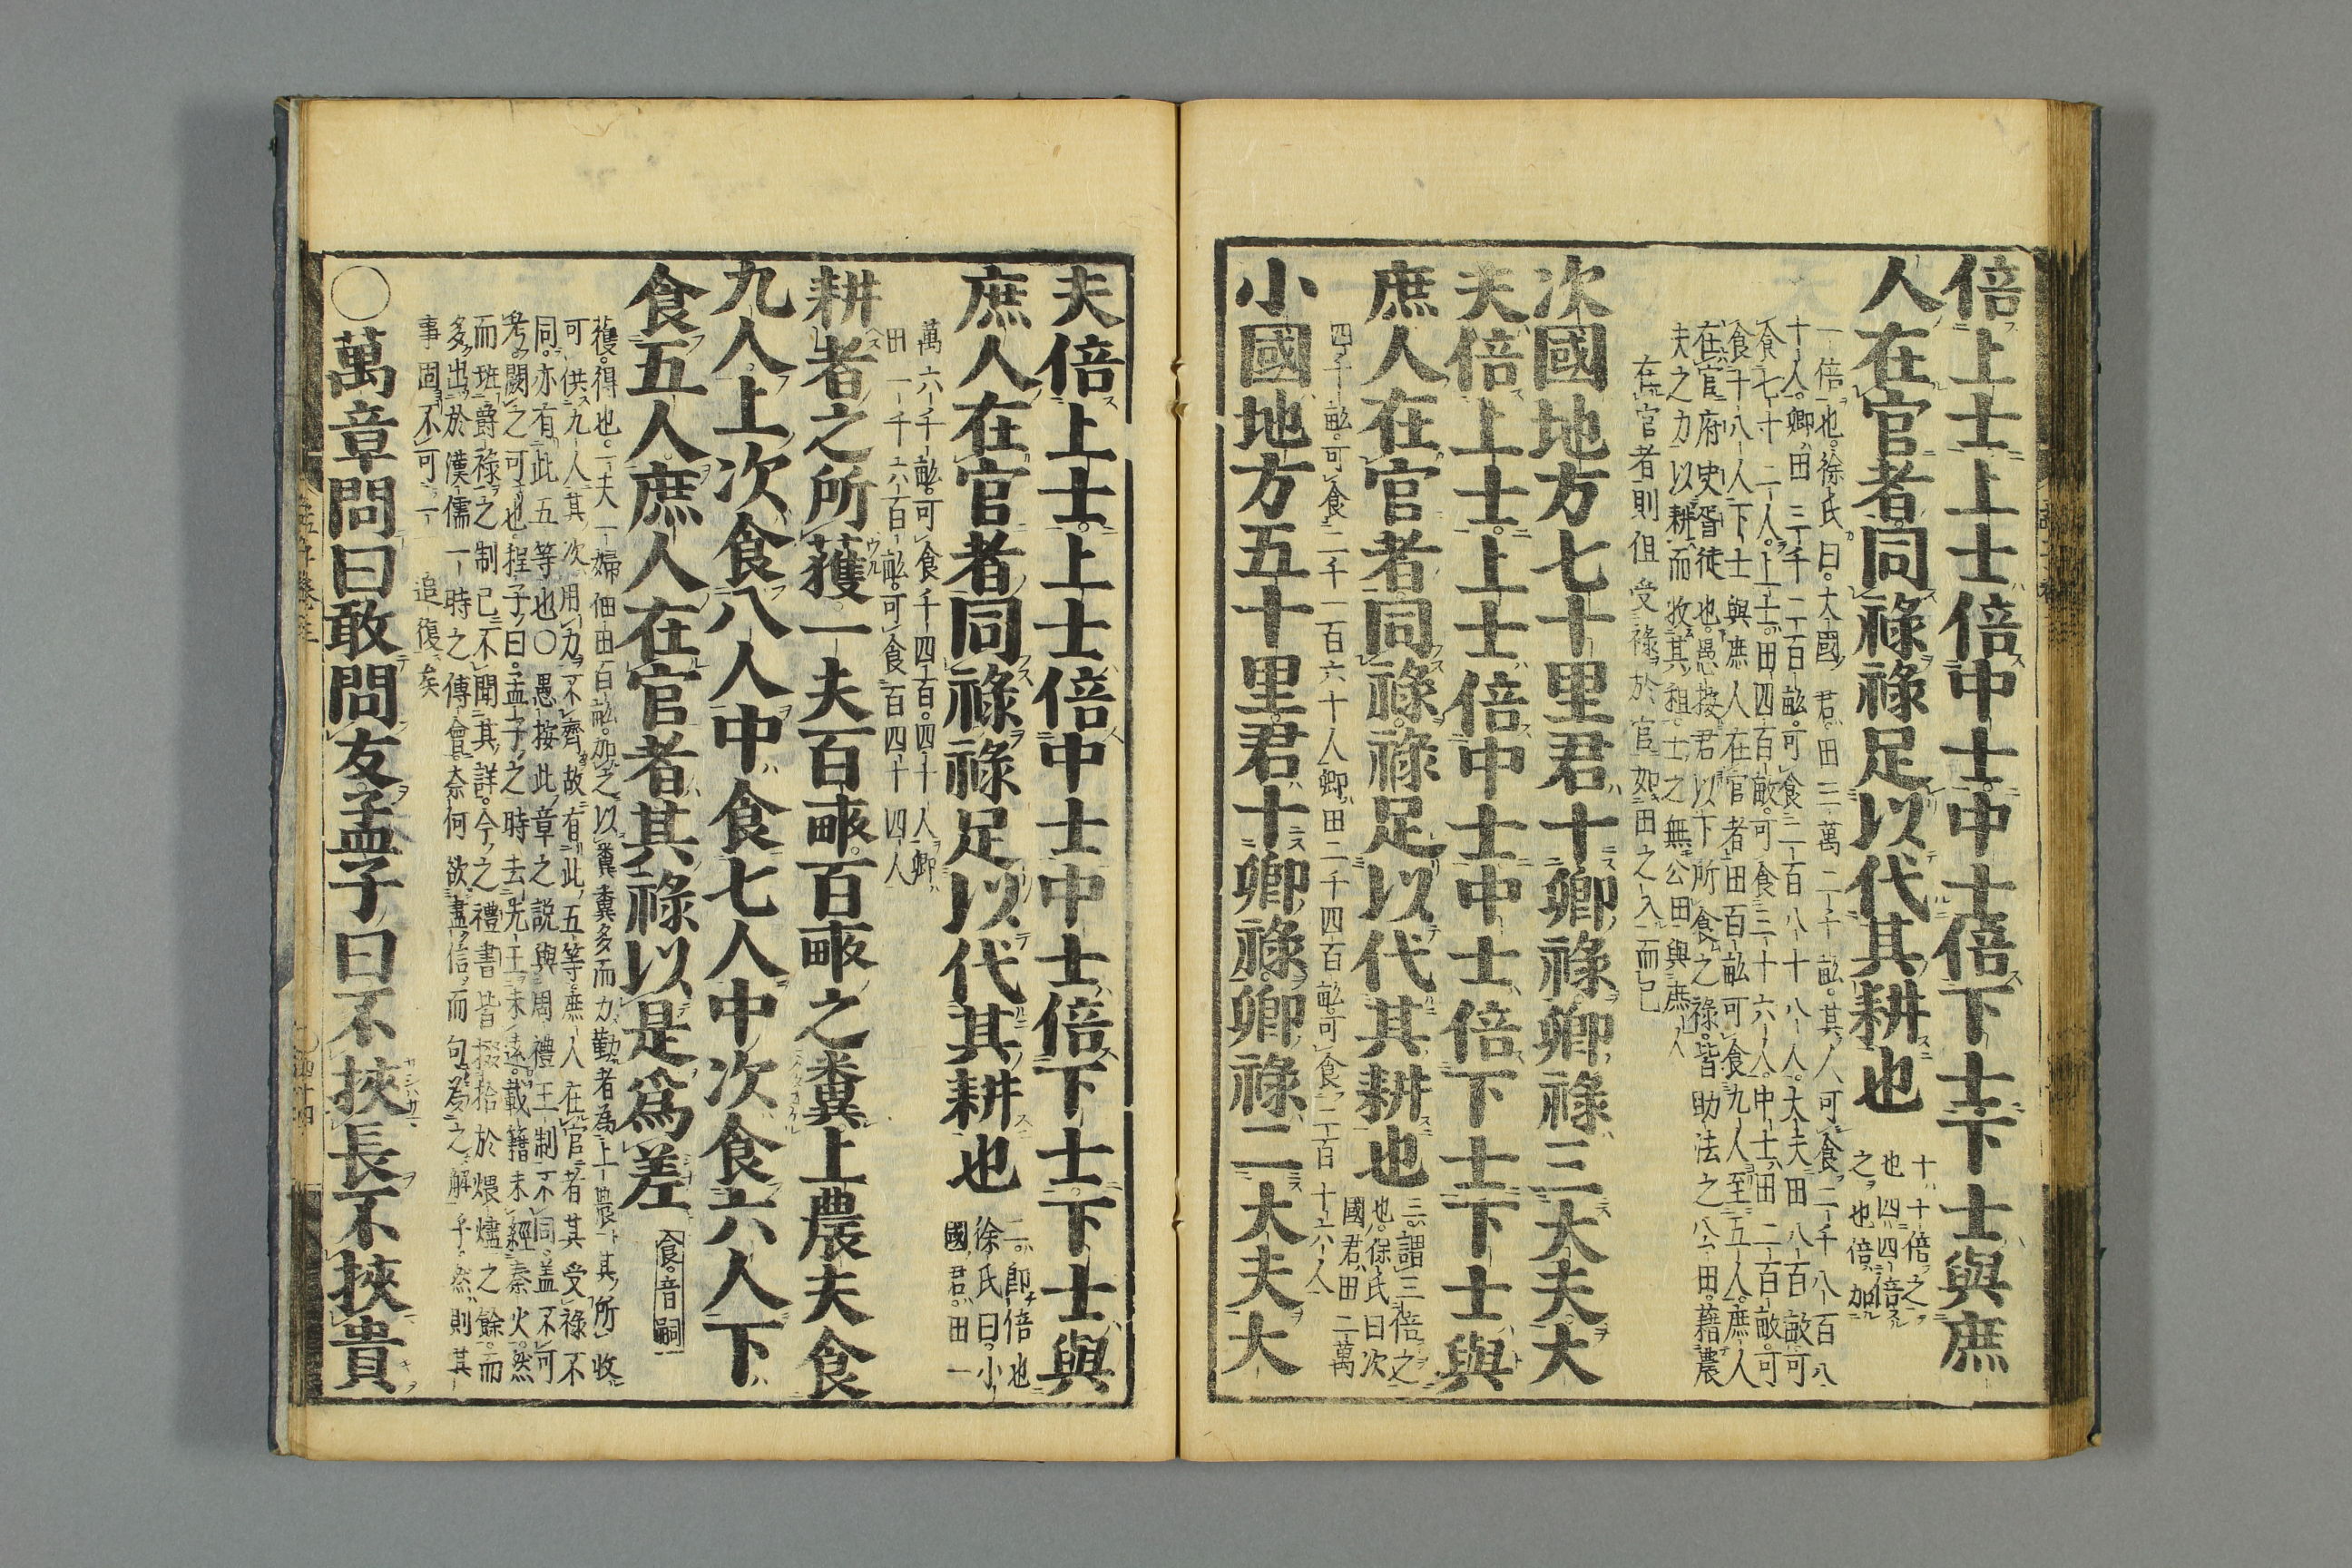 倍上士上士倍中士中士倍下士下士與庶
人在官者同祿祿足以代其耕也
十十倍之
也四四倍
之也倍加
一倍也。徐氏曰。大國君。田三萬二千畝。其人可食二千八百八
十人。卿田三千二百畝。可食二百八十八人。大夫田八百畝可
食七十二人。上士田四百畝。可食三十六人。中士田二百畝。可
食十八人下士與庶人在官者田百畝可食九人至五人。庶人
在官府史胥徒也。愚按君以下所食之祿。皆助法之公田。藉農
夫之力以耕而收其租。士之無公田與庶人
在官者則但受祿於官如田之入而已
次國地方七十里君十卿祿卿祿三大夫大
夫倍上士。上士倍中士中士倍下士下士與
庶人在官者同祿。祿足以代其耕也
三。謂三倍之
也。徐氏曰次
國君。田二萬
四千畝。可食二千一百六十人卿田二千四百畝。可食二百十六人
小國地方五十里。君十卿祿。卿祿二大夫大
夫倍上士。上士倍中士中士倍下士。下士與
庶人在官者同祿祿足以代其耕也
二。即倍也
徐氏曰。小
國君。田一
萬六千畝。可食千四百。四十人卿
田一千六百畝。可食百四十四人
耕者之所獲一夫百畞。百畞之糞上農夫食
九人上次食八人中食七人中次食六人下
食五人。庶人在官者其祿以是爲差
食。音嗣
獲。得也。一夫一婦佃田百畝。加之以糞糞多而力勤者為上農其所收
可供九人其次用力不齊故有此五等。庶人在官者其受祿不
同。亦有此五等也〇愚按此章之説與周禮王制不同。盖不可
考。闕之可也。程子曰。孟子之時去先王未遠。載籍未經秦火。然
而班爵祿之制已不聞其詳。今之禮書皆掇拾於煨燼之餘。而
多出於漢儒一時之傅會奈何欲盡信而句為之解乎。然則其
事固不可一一追復矣
〇萬章問曰敢問友孟子曰不挾長不挾貴